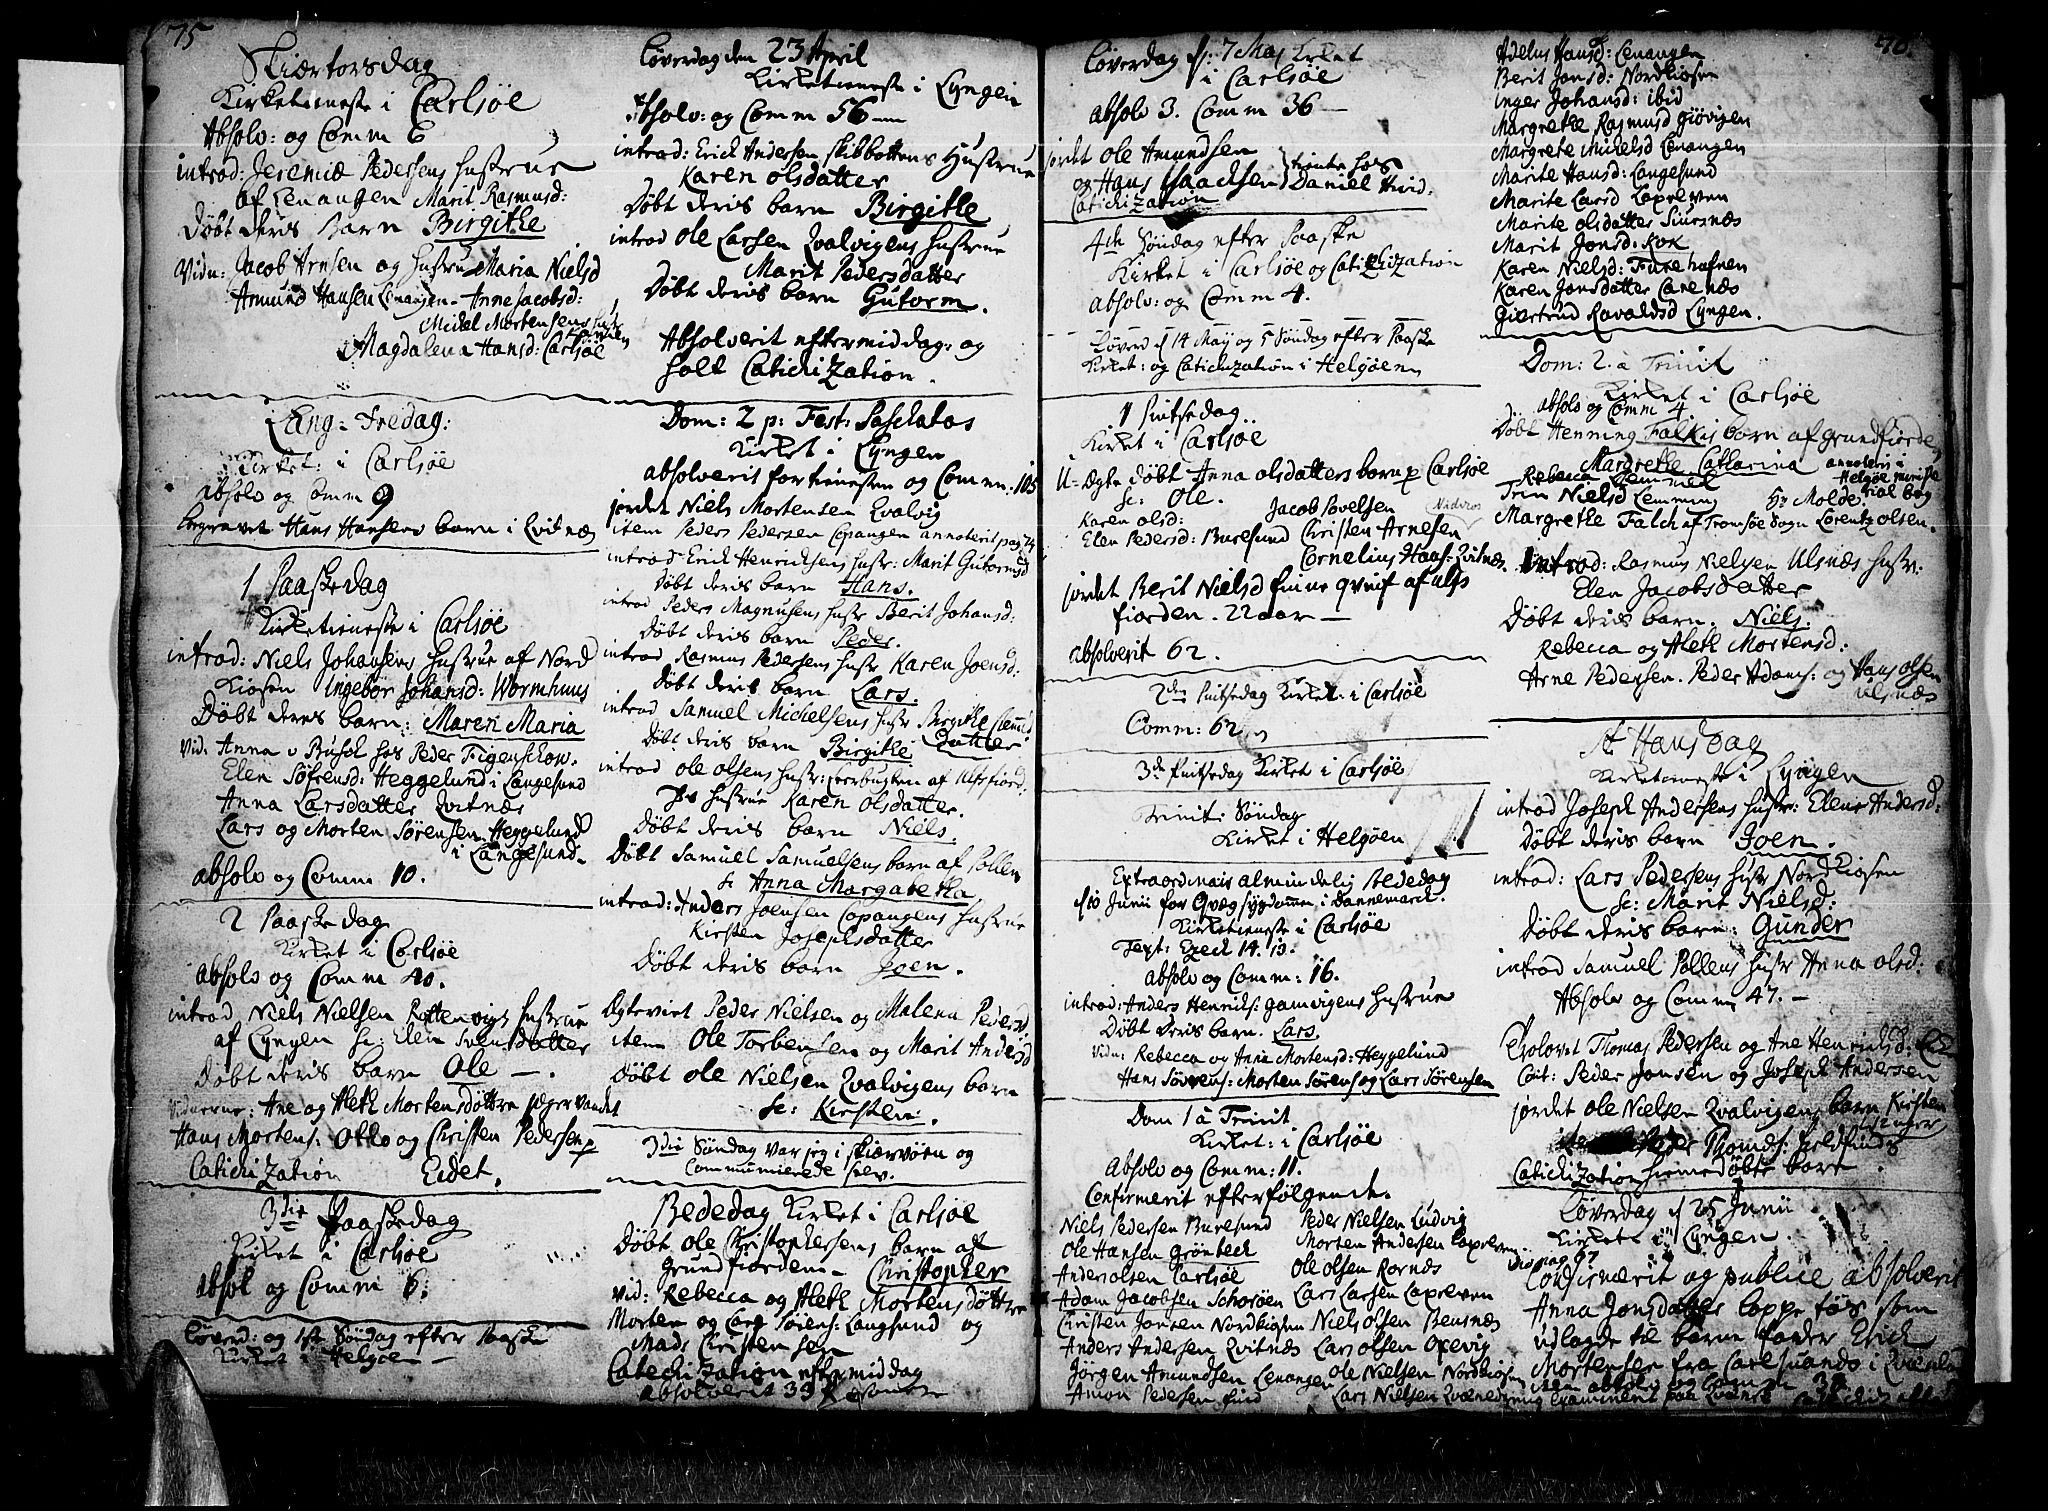 75
Skiærtorsdag
Kirketieneste i Carlsöe
Absolv: og Comm 6
introd: Jeremiæ Pedersens hustrue
af Lenangen Marit Rasmusd:
Döbt deris Barn Birgithe
Vidn: Jacob Arnsen og hustru Maria Nielsd
Amund Hansen Lenangen. Anne Jacobsd:
Michel Mortensens
Magdalena Hansd: Carlsöe
Lang-Fredag:
Kirket: i Carlsöe
absolv og Comm 9
begravet Hans Hansens barn i Qvitnæs
1 Paaskedag
Kirketieneste i Carlsöe
introd: Niels Johansens hustrue af Nord
Kiosen Ingebor Johansd: Wormhuus
Döbt deris barn: Maren Maria
Vid. Anna v Busch hos Peder Figenschow.
Elen Söfrensd: Heggelund i Langesund
Anna Larsdatter Qvitnæs
Lars og Morten Sörensen Heggelund
i Langesund.
absolv og Comm 10.
2 Paaskedag
Kirket i Carlsöe
absolv og Comm 20.
introd Niels Nielsen Rottenvigs hustrue
af Lyngen sc: Elen Svensdatter
Döbt deris barn Ole —.
Vidnerne: Ane og Aleth Mortensdöttre Jægervandet
Hans Mortens: Otto og Christen Pedersen p
Catichization Eidet.
3die Paaskedag
Kirket i Carlsöe
absol og Comm 6.
Löverd: og 1ste Söndag efter Paaske
Kirket i Helgöe —
Löverdag den 23 April
Kirketieneste i Lyngen
Absolv: og Comm 56 —
introd: Erick Andersen Skibbottens Hustrue
Karen Olsdatter
Döbt deris barn Birgithe
introd Ole Larsen Qvalvigens hustrue
Marit Pedersdatter
Döbt deris barn Gutorm.
Absolverit eftermiddag: og
holt Catichization.
Dom: 2 p: Fest: Paschatos
Kirket i Lyngen
absolverit for tienesten og Comm: 105
jordet Niels Mortensen Qvalvig
item Peders Pedersen Copangen annoterit pag 74
introd Erick Henrichsens hustr: Marit Gutormsd
Döbt deris barn Hans.
introd Peders Magnusens hustr Berit Johansd:
Döbt deris barn Peder.
introd Rasmus Pedersens hustr Karen Joensd:
Döbt deris barn Lars.
introd Samuel Michelsens hustr Birgithe
Datter
Döbt deris barn Birgithe
introd Ole Olsens hustr: Leerbugten af Ulfsfiord.
hustrue Karen Olsdatter.
Döbt deris barn Niels.
Döbt Samuel Samuelsens barn af Pollen
sc Anna Margaretha
introd: Anders Joensen Copangens hustrue
Kirsten Josephsdatter
Döbt deris barn Joen.
Ægteviet Peder Nielsen og Malena Pedersd
item Ole Torbensen og Marit Andersd
Döbt Ole Nielsen Qvalvigens barn
sc: Kirsten.
3die Söndag var jeg i Skiærvöen og
Communicerede selv.
Bededag Kirket i Carlsöe
Döbt Ole Christophersens barn af
Grundfiorden. Christopher
Vid: Rebecca og Aleth Mortensdöttre
Morten og Lars Sörens: Langsund og
Mads Christensen
Catechization eftermiddag
absolverit 33
Löverdag d: 7 Maj Kirket
i Carlsöe
absolv 3. Comm 36 —
jordet Ole Amundsen
og Hans Isaachsen } tiente hos
Daniel Hvid:
Catichization
4de Söndag efter Paaske
Kirket i Carlsöe og Catichization
absolv: og Comm 4.
Löverd d 14 Maij og 5 Söndag efter Paaske
Kirket: og Catichization i Helgöen
1 Pintsedag.
Kirket i Carlsöe
U-Ægte döbt Anna Olsdatters barn p Carlsöe
sc: Ole.
Karen Olsd: Jacob Povelsen
Elen Pedersd: Buresund Christen Arnesen
Nidros
Cornelius Haas: Qvitnæs.
jordet Berit Nielsd Finne qvist af Ulfs
fiorden. 22 aar —
absolverit 62.
2den Pintsedag Kirket: i Carlsöe
Comm: 62
3de Pintsedag Kirket i Carlsöe
Trinit: Söndag
Kirket i Helgöen
Extraordinair almindelig Bededag
d 10 Junii for Qvæg sygdommen i Dannemarck.
Kirketieneste i Carlsöe
Text: Ezech 14. 13.
absolv og Comm: 16.
introd: Anders Henrichs: Gamvigens hustrue
Döbt deris barn. Lars.
Vidn: Rebecca og Anne Mortensd: Heggelund
Hans Sörens: Morten Sörens og Lars Sörensen
Dom 1 a Trinit
Kirket: i Carlsöe
Absolv og Comm: 11.
Confirmerit efterfölgende.
Niels Pedersen Buresund Peder Nielsen Ludvig
Ole Hansen Grönbeck Morten Andersen Lapleven
Anders Olsen Carlsöe Ole Olsen Kornæs
Adam Jacobsen Schoröen Lars Larsen Lapleven
Christen Jonsen Nordkiosen Niels Olsen Beusnæs
Anders Andersen Qvitnæs Lars Olsen Oxevig
Jörgen Amundsen Lenangen Ole Nielsen Nordkiosen
Amon Pedersen Find Lars Nielsen Qvæneding
76.
Adelus Hansd: Lenangen
Berit Jonsd: Nordkiosen
Inger Johansd: ibid
Margrethe Rasmusd Giövigen
Margrete Michelsd Lenangen
Marite Hansd: Langesund
Marite Larsd Lapleven
Marite Olsdatter Siursnæs
Marit Jonsd: Kok
Karen Nielsd: Furehafnen
Karen Jonsdatter Carenæs
Giertrud Ravaldsd Lyngen.
Dom: 2. a Trinit
Kirket i Carlsöe
absolv og Comm 4
Döbt Henning Falkis barn af Grundfiorden
Margrethe Catharina annoteris i
Helgöe
Rebecca Lemmel
Trin Nielsd Lemming Hr Molde
Margrethe Falch af Tromsöe Sogn Lorentz Olsen.
Introd: Rasmus Nielsen Ulsnæs hustr:
Elen Jacobsdatter
Döbt deris barn. Niels.
Rebecca og Aleth Mortensd:
Arne Pedersen. Peder Adams: og Hans Olsen
Ulsnæs
St Hansdag
Kirketieneste i Lyngen
introd Joseph Andersens hustr: Elene Andersd:
Döbt deris barn Joen.
introd: Lars Pedersens hustr Nordkiosen
sc: Marit Nielsd:
Döbt deris barn: Gunder
introd Samuel Pollens hustr Anna Olsd:
Absolv og Comm 47. —
Trolovet Thomas Pedersen og Ane Henrichsd:
Cait: Peder Jonsen og Joseph Andersen
jordet Ole Nielsen Qvalvigens barn Kirsten
Peder Thomes:
Catichization hiemedöbte barn
Löverdag d 25 Junii
Kirket i Lyngen.
vid pag 67
Confirmerit og publice absolverit
Anna Jonsdatter Lappe tös som
udlagde til barne fader Erick
Mortensen fra Caresuando i
item absolv og Comm 32
examinerit